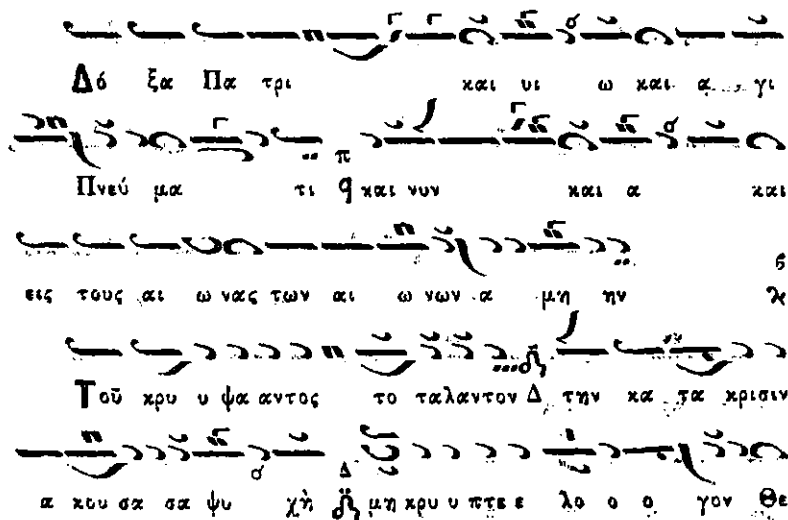 Δό ξα Πα τρι και υι ω και α γι
Πνεύ μα τι π q και νυν και α και
εις τους αι ω νας των αι ω νων α μη ην
Τοῦ κρυ υ ψα αντος το ταλαντον Δ την κα τα κρισιν
α κου σα σα ψυ χὴ Δ μη κρυ υ πτε ε λο ο ο γον Θε